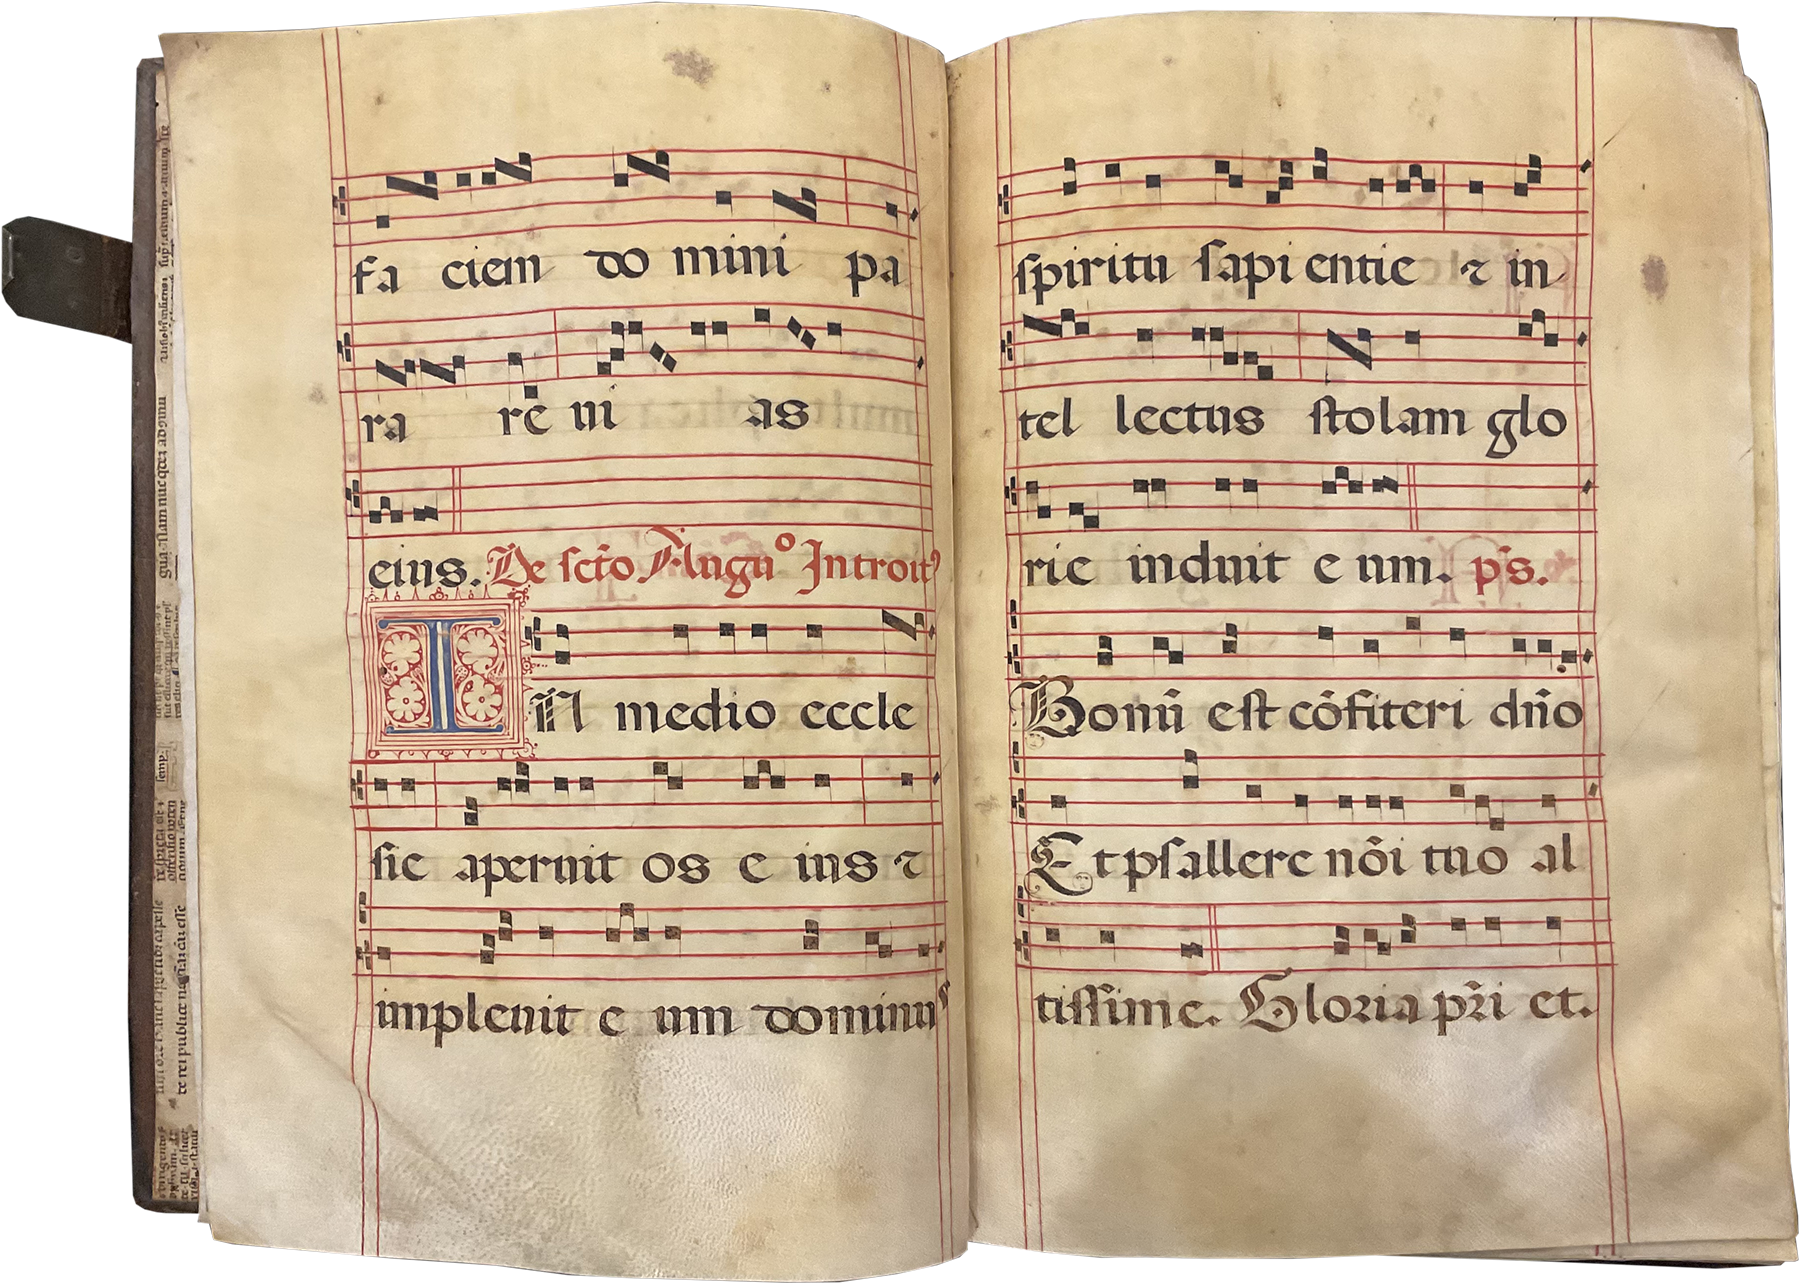 fa ciem do mini pa
ra re vi as
eius. De scto Augu⁰ Introit⁹
IN medio eccle
sie aperuit os e ius ⁊
impleuit e um dominus
spiritu sapi entie ⁊ in
tel lectus stolam glo
rie induit e um. ps.
Bonū est cōfiteri dño
Et psallere nōi tuo al
tissime. Gloria pr̄i et.